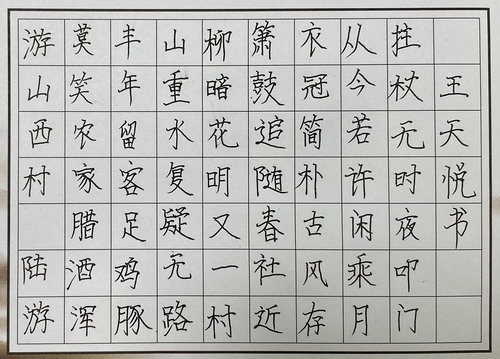 游山西村 陆游
莫笑农家腊酒浑
丰年留客足鸡豚
山重水复疑无路
柳暗花明又一村
箫鼓追随春社近
衣冠简朴古风存
从今若许闲乘月
拄杖无时夜叩门
王天悦书